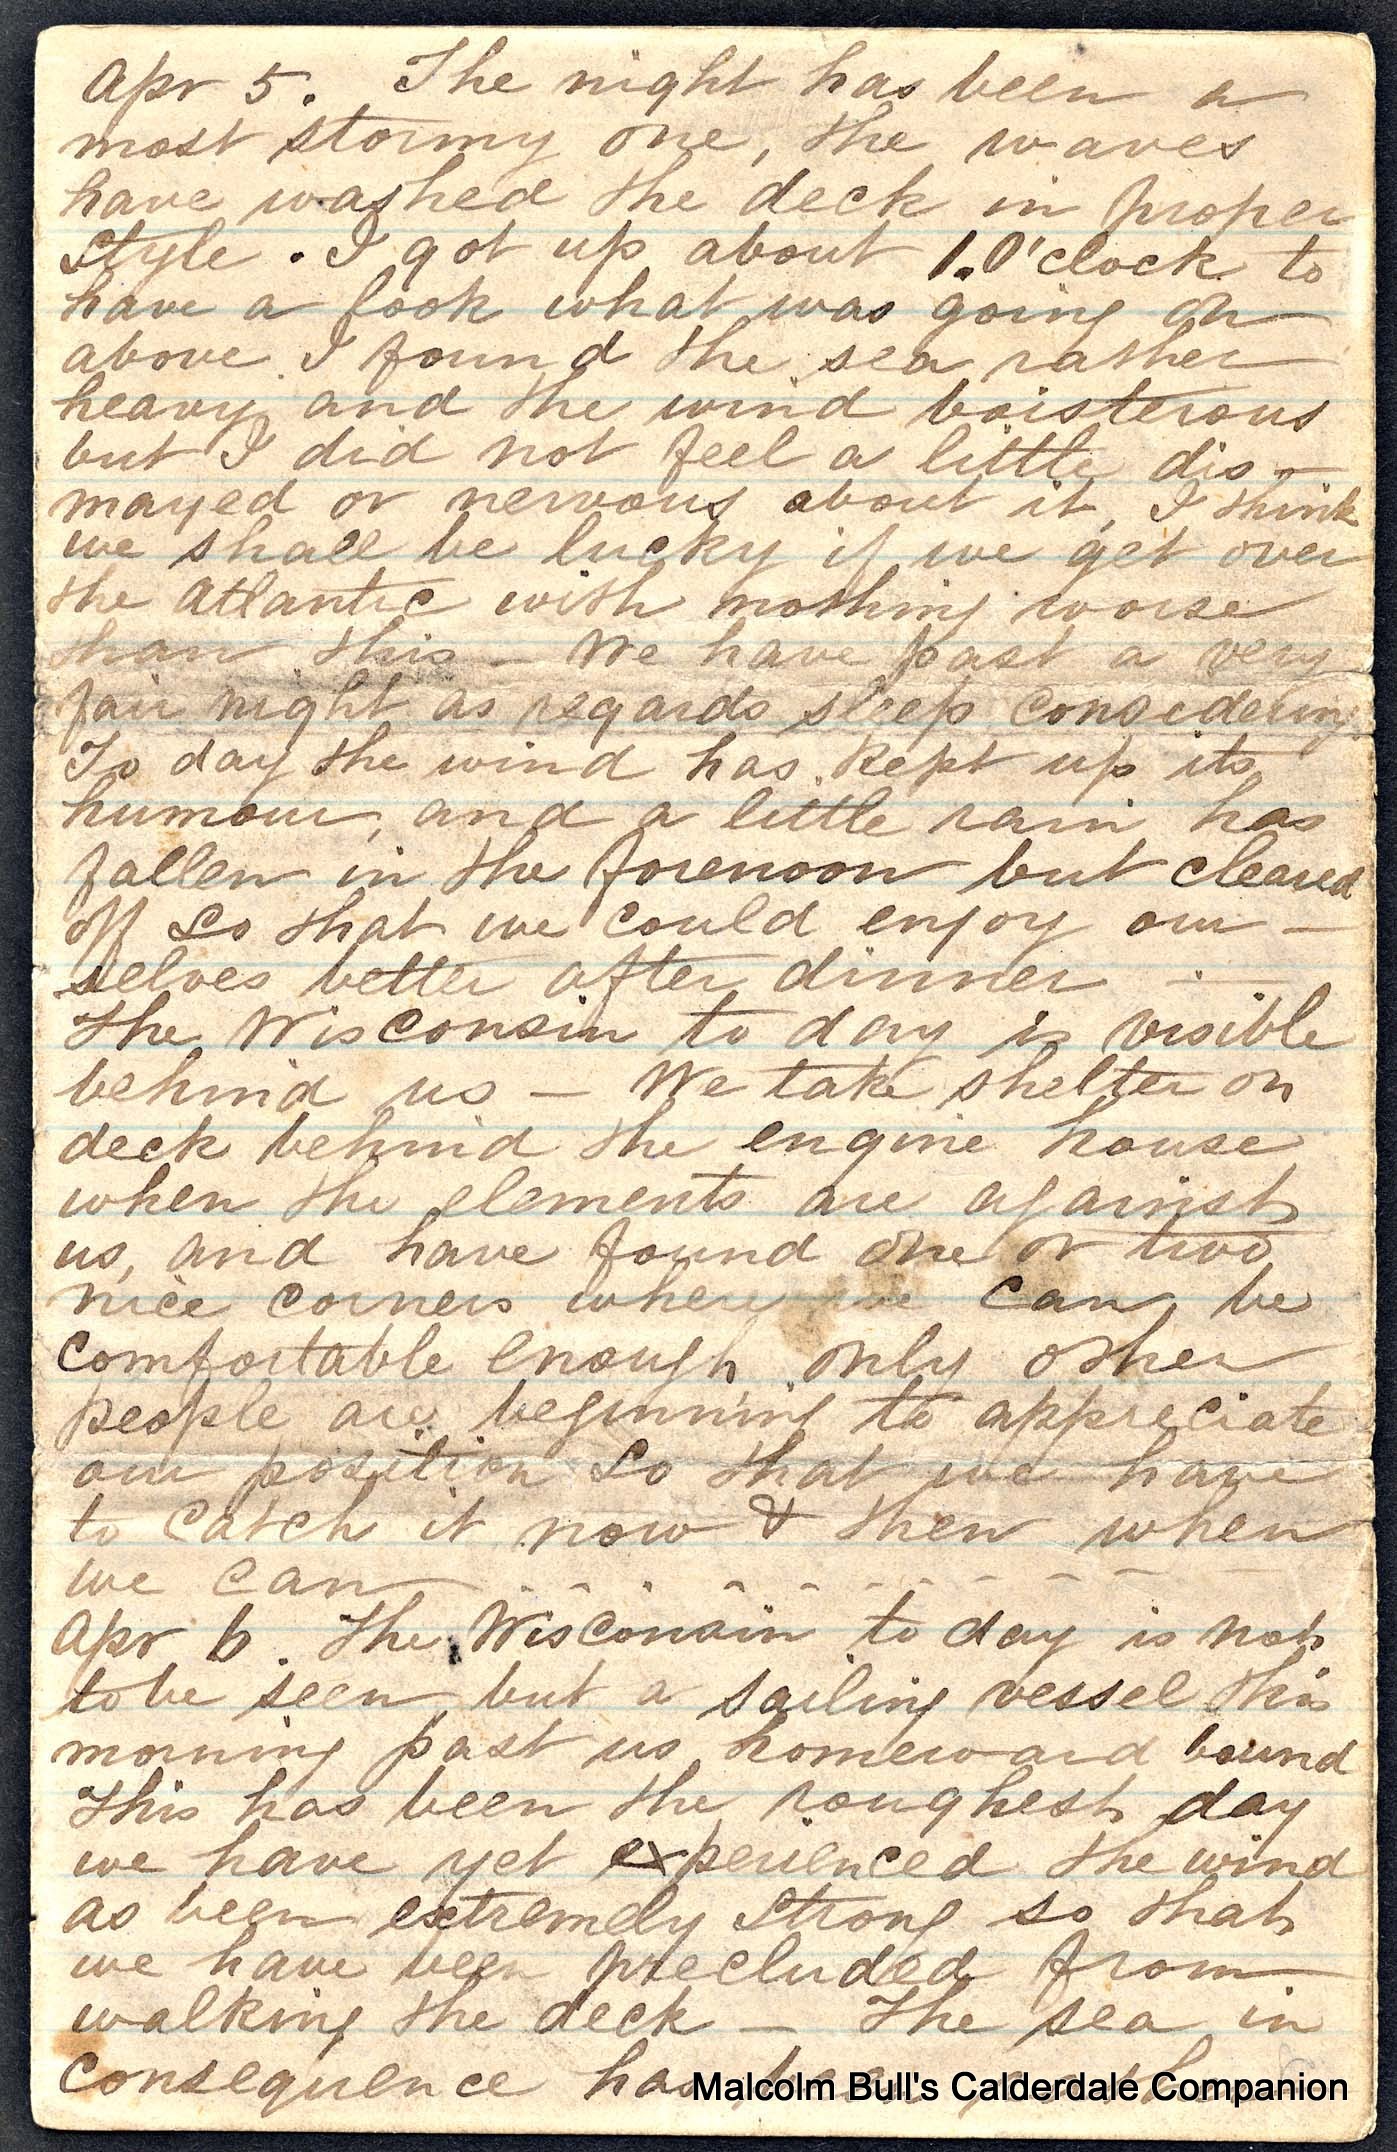 Apr 5. The night has been a
most stormy one, the waves
have washed the deck in proper
style. I got up about 1.O'clock to
have a look what was going on
above. I found the sea rather
heavy and the wind boisterous
but I did not feel a little dis-
mayed or nervous about it, I think
we shall be lucky if we get over
the Atlantic with nothing worse
than this - We have past a very
fair night as regards sleep considering.
To day the wind has kept up its
humour, and a little rain has
fallen in the forenoon but cleared
off so that we could enjoy our-
selves better after dinner -
The Wisconsin to day is visible
behind us - We take shelter on
deck behind the engine house
when the elements are against
us, and have found one or two
nice corners where we can be
comfortable enough only other
people are beginning to appreciate
our position so that we have
to catch it now & then when
we can - - - - - - - - - - -
Apr 6. The Wisconsin to day is not
to be seen but a sailing vessel this
morning past us homeward bound
This has been the roughest day
we have yet experienced the wind
as been extremely strong so that
we have been precluded from
walking the deck - The sea in
consequence has been
Malcolm Bull's Calderdale Companion